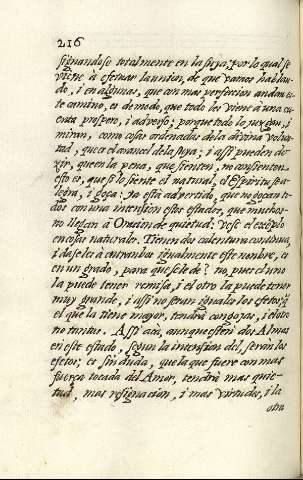 216
signandose totalmente en la suya; por lo qual se
viene à efetuar la union, de que vamos hablan-
do, i en algunas, que con mas perfeccion andan es-
te camino, es de modo, que todo les viene à una cu-
enta prospero, i adverso; porque todo lo juzgan, i
miran, como cosas ordenadas de la divina volun-
tad, que es el arancel de la suya; i assi pueden de-
zir, que en la pena, que sienten, no consienten,
esto es, que si lo siente el natural, el Espiritu se a-
legra, i goza: ya està advertido, que no gozan to-
dos con una intension estos estados, que muchos
no llegan à Oracion de quietud: Vese el exèplo
en cosas naturales. Tienen dos calentura continua,
i daseles à entrambos igualmente este nombre, es
en un grado, para que se le dè? no pues el uno
la puede tener remisa, i el otro la puede tener
muy grande, i assi no seran iguales los efetos; q̃
el que la tiene mayor, tendrà congojas, i el otro
no tantas. Assi acà, aunque estèn dos Almas
en este estado, segun la intension del, seràn los
efetos; es sin duda, que la que fuere con mas
fuerça tocada del Amor, tendrà mas quie-
tud, mas resignacion, i mas virtudes, i la
otra